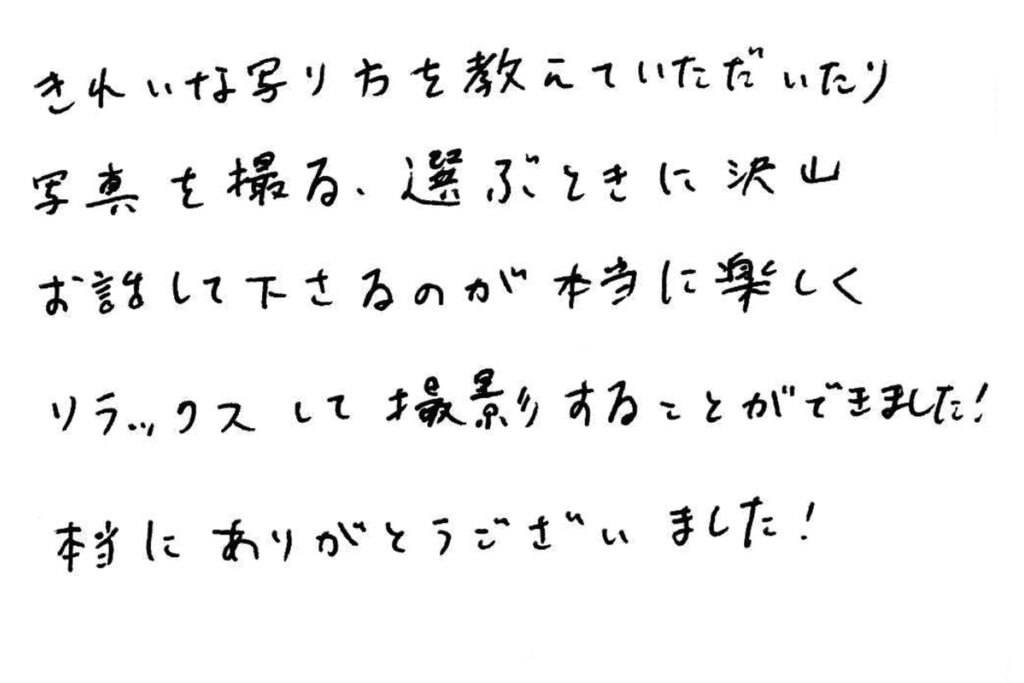 きれいな写り方を教えていただいたり
写真を撮る、選ぶときに沢山
お話して下さるのが本当に楽しく
リラックスして撮影することができました!
本当にありがとうございました!